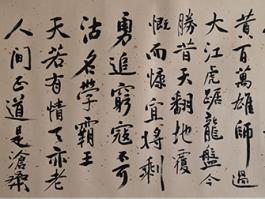 黄百萬雄師過
大江虎踞龍盤今
勝昔天翻地覆
慨而慷宜將剩
勇追窮寇不可
沽名學霸王
天若有情天亦老
人间正道是滄桑